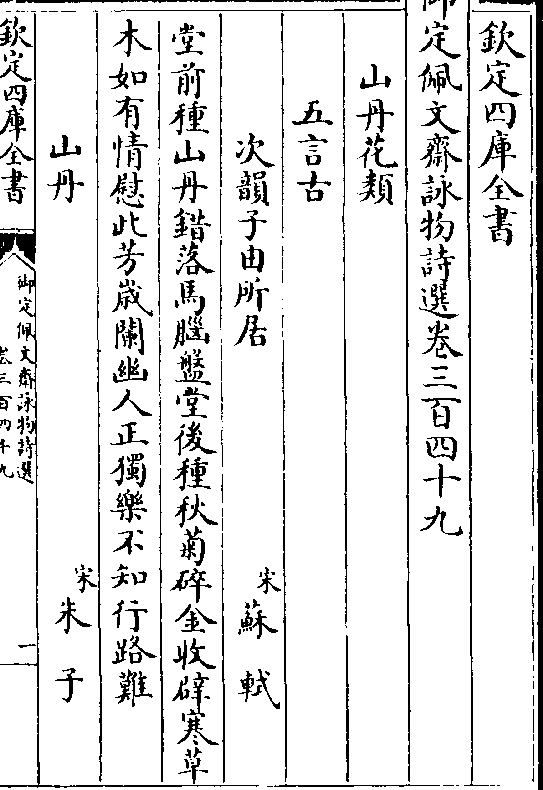 欽定四庫全書
御定佩文齋詠物詩選卷三百四十九
山丹花類
五言古
次韻子由所居
宋
蘇軾
堂前種山丹錯落馬腦盤堂後種秋菊碎金收辟寒草
木如有情慰此芳歳闌幽人正獨樂不知行路難
山丹
宋
朱子
欽定四庫全書
御定佩文齋詠物詩選
卷三百四十九
一